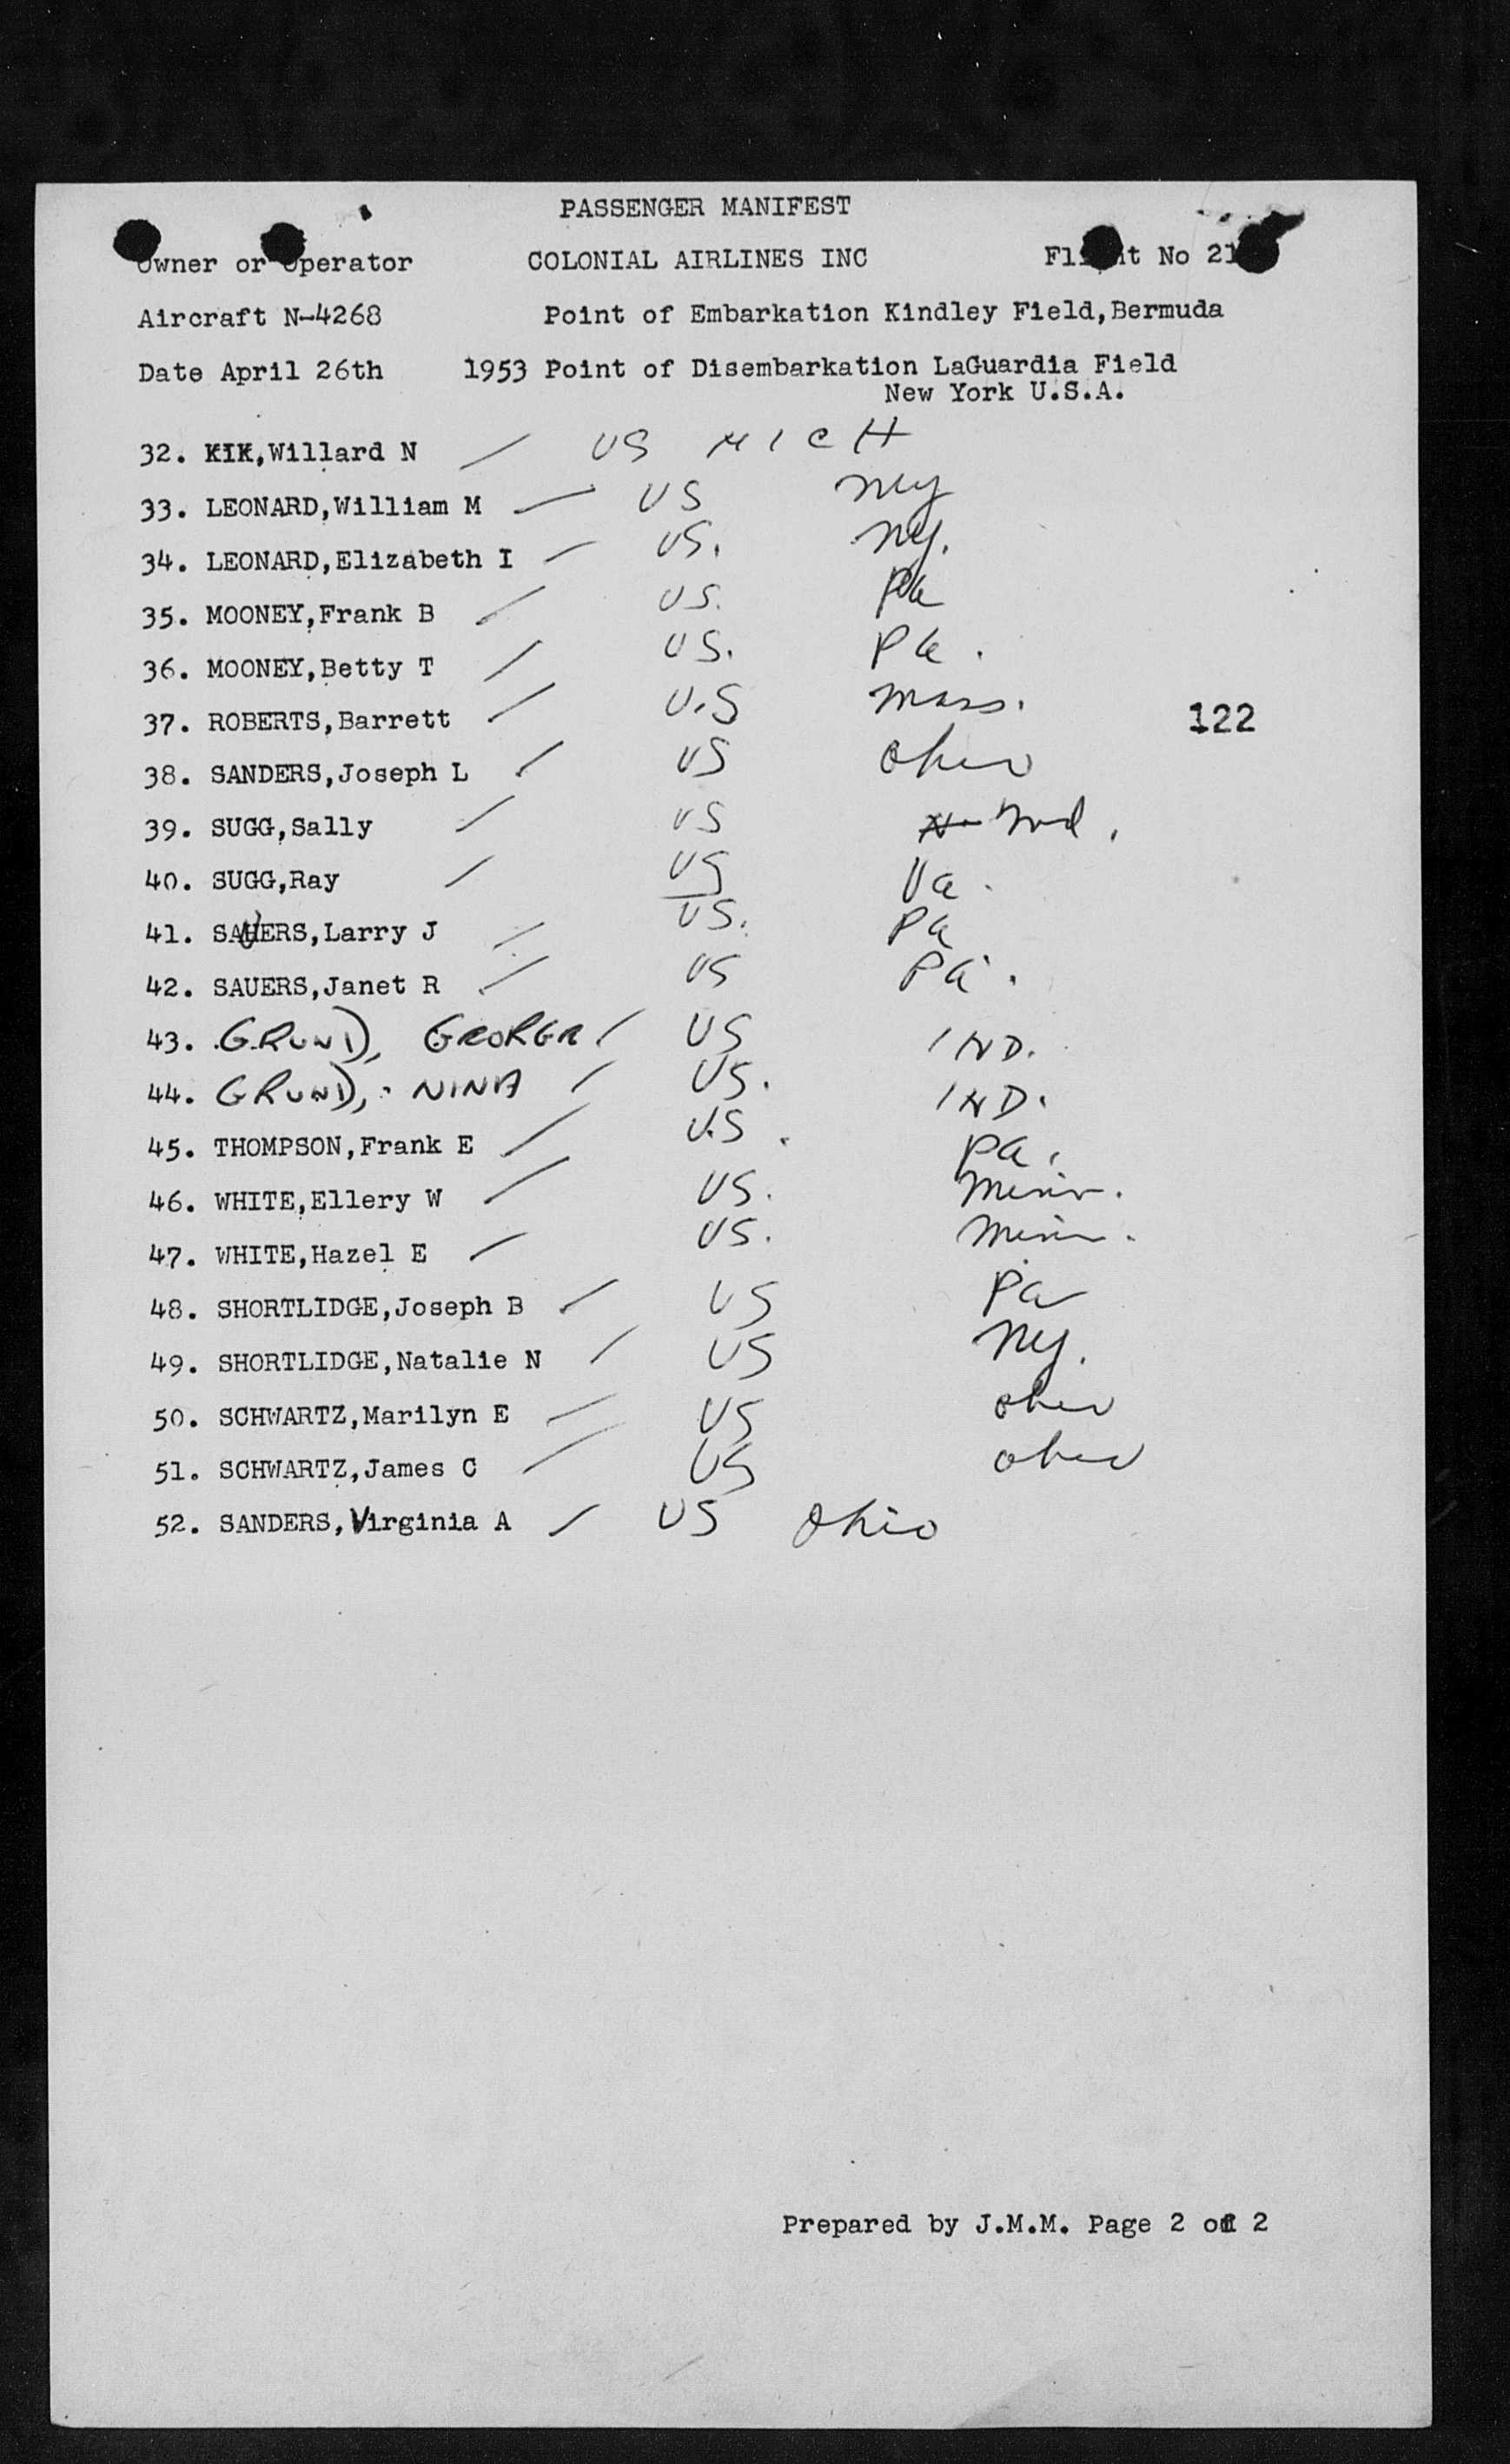 PASSENGER MANIFEST
Owner or Operator COLONIAL AIRLINES INC Flight No 21
Aircraft N-4268 Point of Embarkation Kindley Field,Bermuda
Date April 26th 1953 Point of Disembarkation LaGuardia Field
New York U.S.A.
32. KIK,Willard N / US MICH
33. LEONARD,William M / US NY
34. LEONARD,Elizabeth I / US. NY.
35. MOONEY,Frank B / US. Pa
36. MOONEY,Betty T / US. Pa.
37. ROBERTS,Barrett / U.S Mass.
122
38. SANDERS,Joseph L / US Ohio
39. SUGG,Sally / US Md.
40. SUGG,Ray / US Va.
41. SAUERS,Larry J / US. Pa
42. SAUERS,Janet R / US Pa.
43. GRUND, GEORGE / US IND.
44. GRUND, NINA / US. IND.
45. THOMPSON,Frank E / U.S. Pa.
46. WHITE,Ellery W / US. Minn.
47. WHITE,Hazel E / US. Minn.
48. SHORTLIDGE,Joseph B / US Pa
49. SHORTLIDGE,Natalie N / US NY.
50. SCHWARTZ,Marilyn E / US Ohio
51. SCHWARTZ,James C / US Ohio
52. SANDERS,Virginia A / US Ohio
Prepared by J.M.M. Page 2 of 2